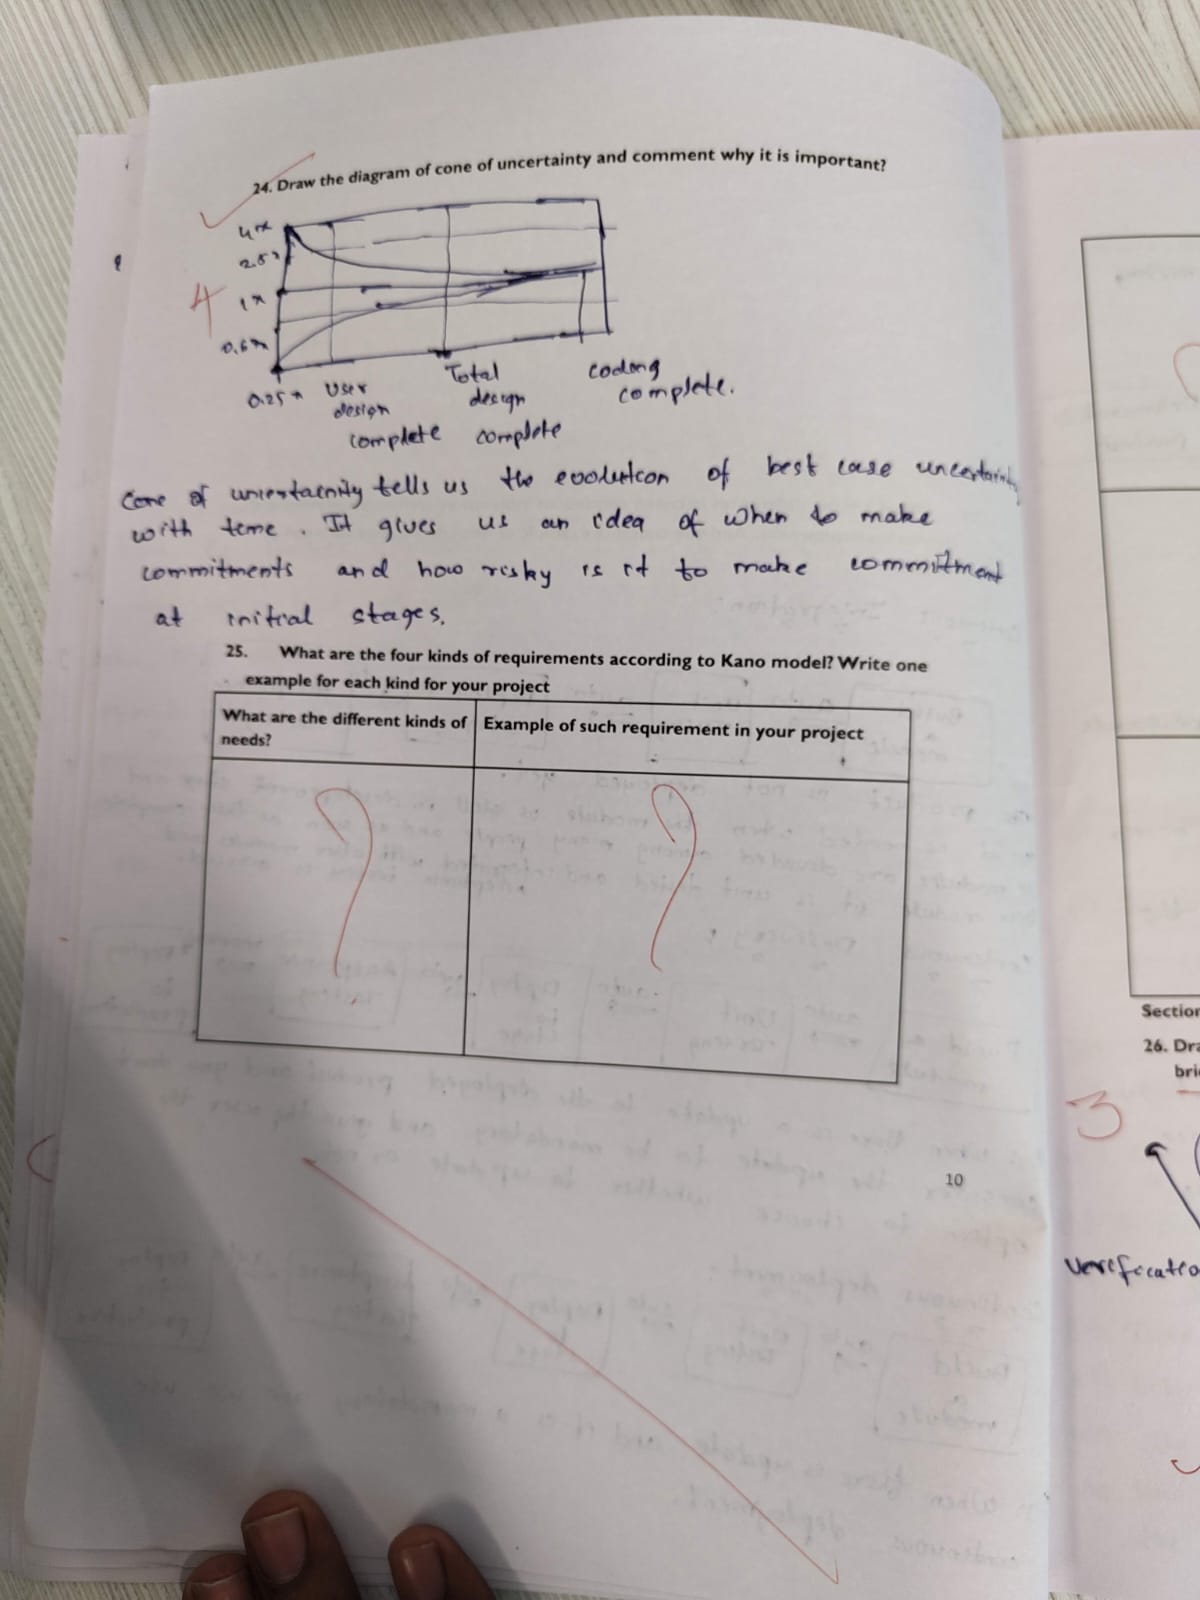 24. Draw the diagram of cone of uncertainty and comment why it is important?
4x
2.5x
4
1x
0.6x
0.25x
User
design
complete
Total
design
complete
coding
complete.
Cone of uncertainity tells us the evolution of best case uncertainty
with time. It gives us an idea of when to make
commitments and how risky is it to make commitment
at initial stages.
25. What are the four kinds of requirements according to Kano model? Write one
example for each kind for your project
What are the different kinds of
needs?
Example of such requirement in your project
?
?
10
Section
26. Dra
brie
3
verificatio